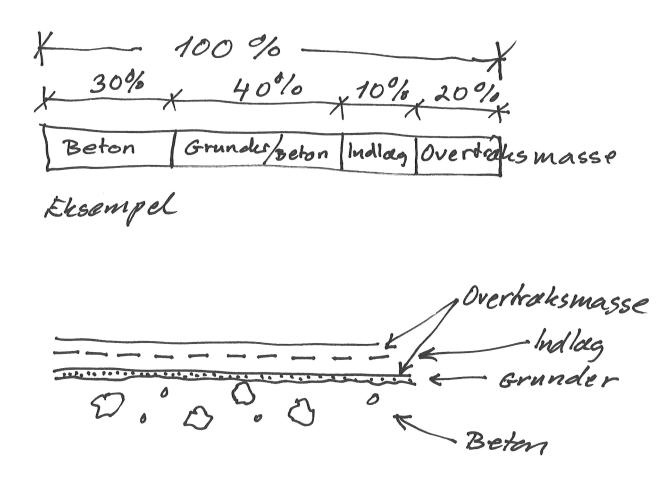 100 %
30% 40% 10% 20%
Beton Grunder/Beton Indlæg Overtræksmasse
Eksempel
Overtræksmasse
Indlæg
Grunder
Beton